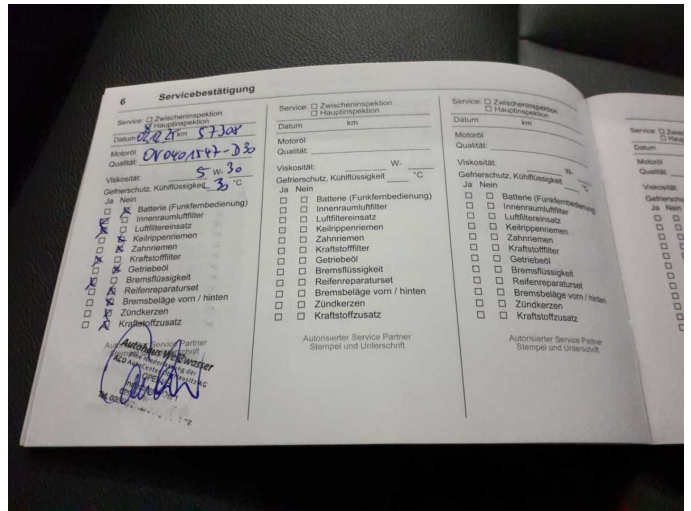 6 Servicebestätigung
Service: Zwischeninspektion
Hauptinspektion
Datum km 57308
Motoröl
Qualität: OV0401547-D30
Viskosität: 5 W- 30
Gefrierschutz, Kühlflüssigkeit - 30 °C
Ja Nein
Batterie (Funkfernbedienung)
Innenraumluftfilter
Luftfiltereinsatz
Keilrippenriemen
Zahnriemen
Kraftstofffilter
Getriebeöl
Bremsflüssigkeit
Reifenreparaturset
Bremsbeläge vorn / hinten
Zündkerzen
Kraftstoffzusatz
Autorisierter Service Partner
Stempel und Unterschrift
Autohaus Weißwasser
Service: Zwischeninspektion
Hauptinspektion
Datum km
Motoröl
Qualität:
Viskosität: W-
Gefrierschutz, Kühlflüssigkeit °C
Ja Nein
Batterie (Funkfernbedienung)
Innenraumluftfilter
Luftfiltereinsatz
Keilrippenriemen
Zahnriemen
Kraftstofffilter
Getriebeöl
Bremsflüssigkeit
Reifenreparaturset
Bremsbeläge vorn / hinten
Zündkerzen
Kraftstoffzusatz
Autorisierter Service Partner
Stempel und Unterschrift
Service: Zwischeninspektion
Hauptinspektion
Datum km
Motoröl
Qualität:
Viskosität: W-
Gefrierschutz, Kühlflüssigkeit °C
Ja Nein
Batterie (Funkfernbedienung)
Innenraumluftfilter
Luftfiltereinsatz
Keilrippenriemen
Zahnriemen
Kraftstofffilter
Getriebeöl
Bremsflüssigkeit
Reifenreparaturset
Bremsbeläge vorn / hinten
Zündkerzen
Kraftstoffzusatz
Autorisierter Service Partner
Stempel und Unterschrift
Service:
Datum
Motoröl
Qualität:
Viskosität:
Ja Nein